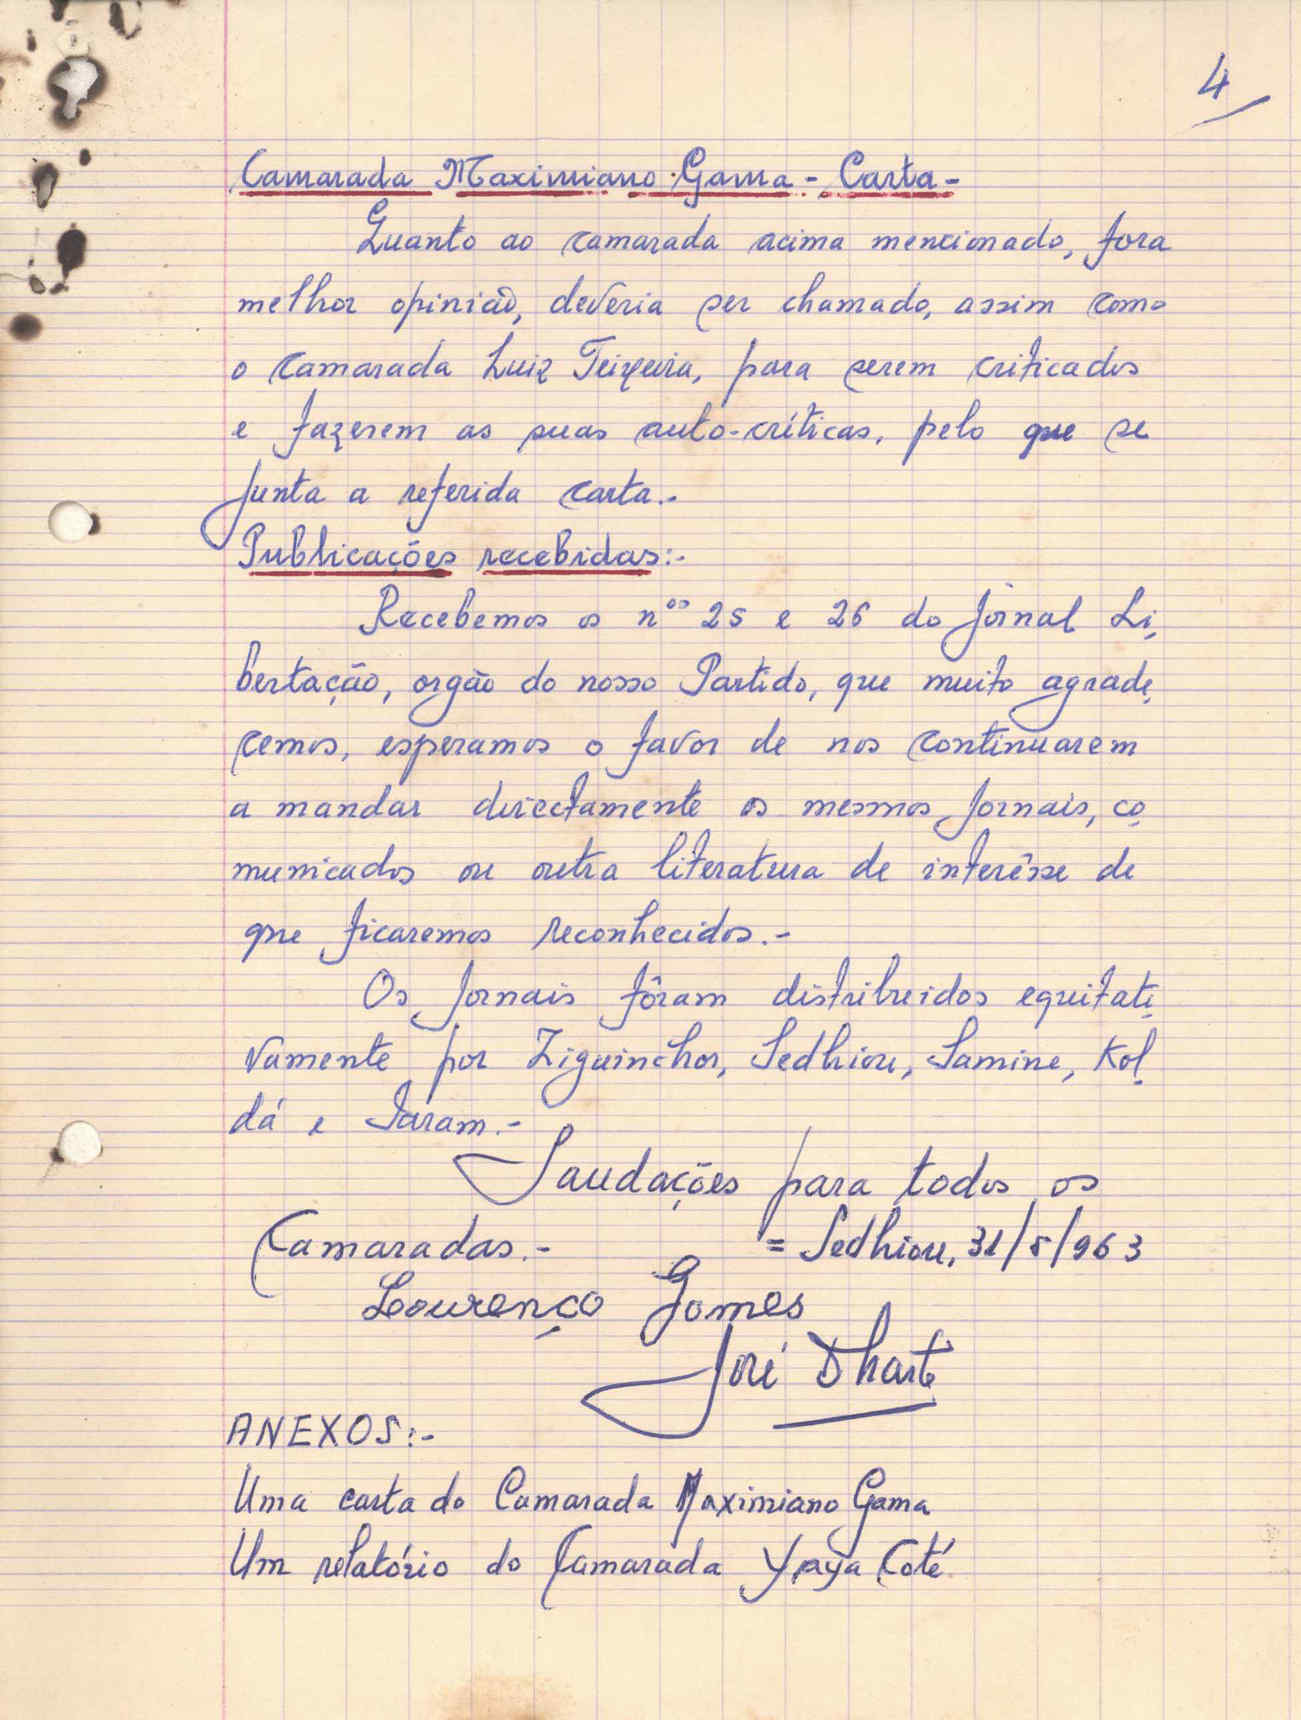 4
Camarada Maximiano Gama - Carta -
Quanto ao camarada acima mencionado, fora
melhor opinião, deveria ser chamado, assim como
o camarada Luiz Teixeira, para serem criticados
e fazerem as suas auto-críticas, pelo que se
junta a referida carta.-
Publicações recebidas:-
Recebemos os nºs 25 e 26 do Jornal Li
bertação, orgão do nosso Partido, que muito agrade
cemos, esperamos o favor de nos continuarem
a mandar directamente os mesmos Jornais, co
municados ou outra literatura de interêsse de
que ficaremos reconhecidos.-
Os Jornais fôram distribuidos equitati
vamente por Ziguinchor, Sedhiou, Samine, Kol
dá e
Saudações para todos os
Camaradas.- = Sedhiou, 31/5/963
Lourenço Gomes
José
ANEXOS:-
Uma carta do Camarada Maximiano Gama
Um relatório do Camarada Yaya Coté